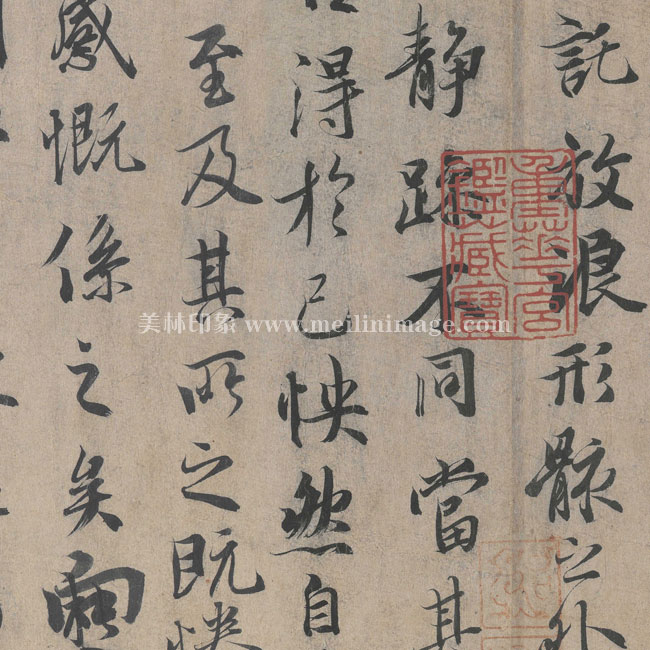 託放浪形骸之外
静躁不同當其
得於己怏然自
至及其所之既
感慨係之矣向
重華宮
鑑藏寶
美林印象 www.meilinimage.com